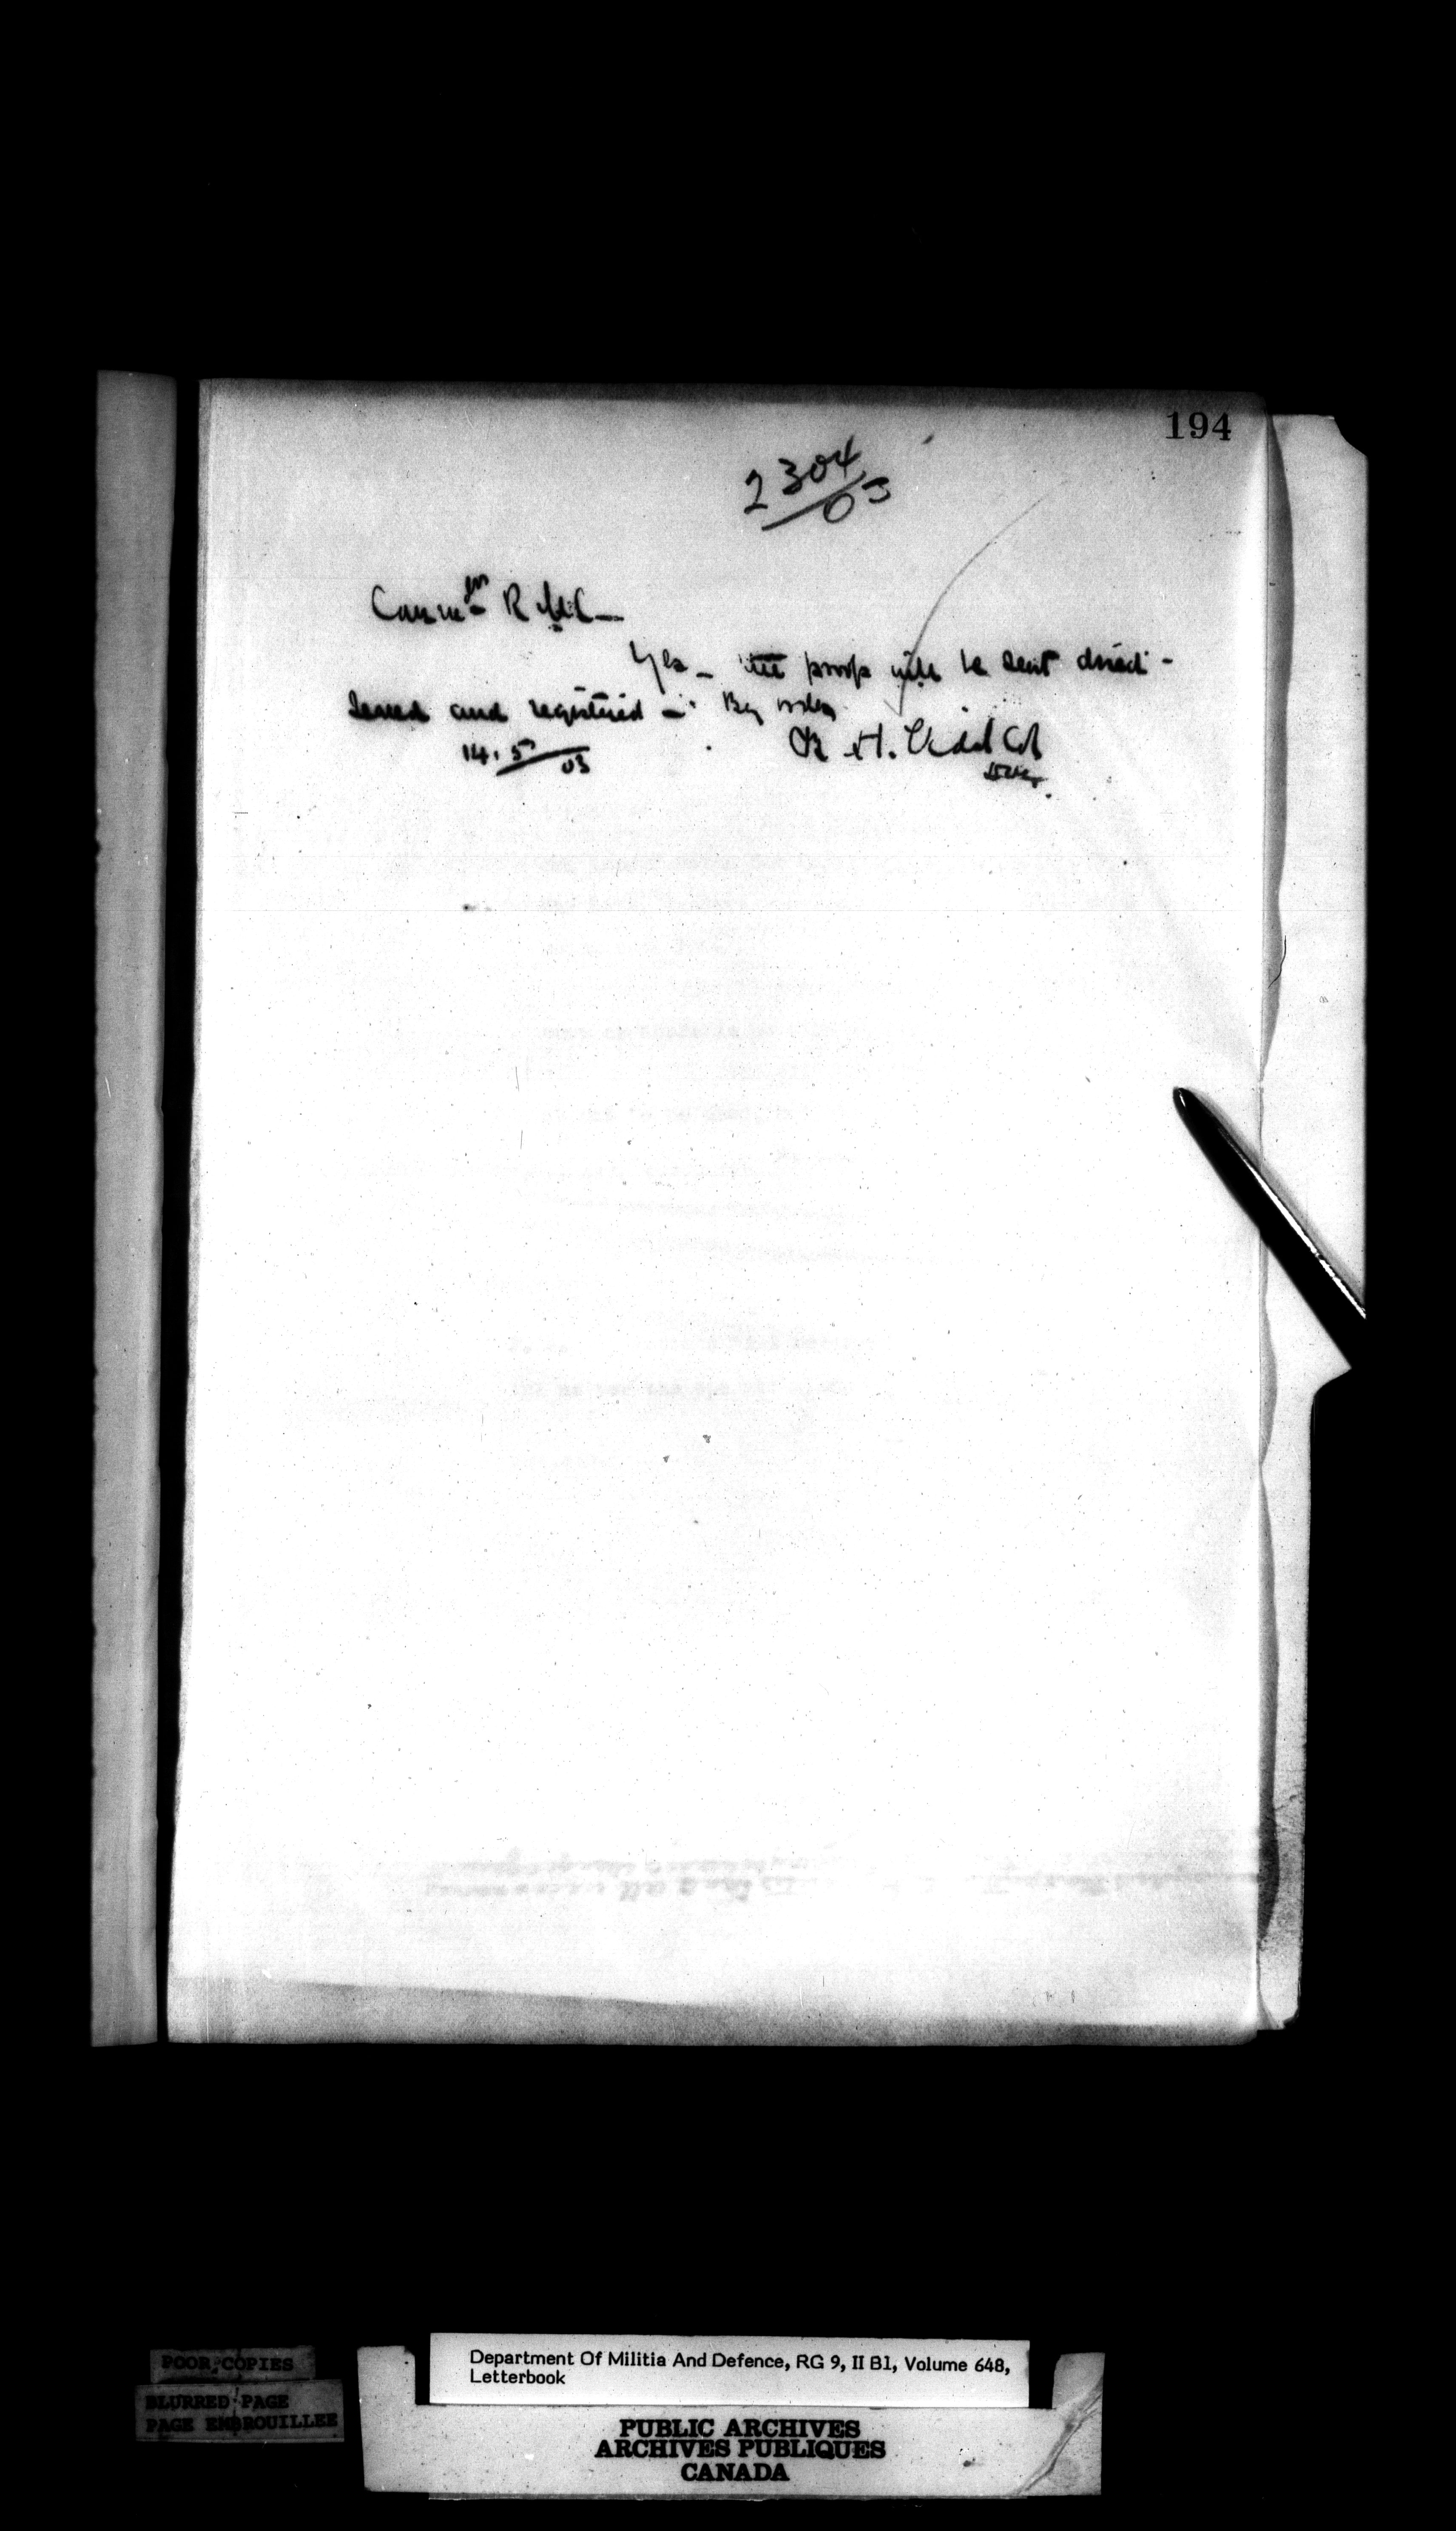 194
2304/03
Commdt R.M.C. —
Yes — the proofs will be sent direct -
Sealed and registered — By order
14.5/03
B. H. Vidal Col
POOR COPIES
BLURRED PAGE
PAGE EMBROUILLEE
Department Of Militia And Defence, RG 9, II B1, Volume 648,
Letterbook
PUBLIC ARCHIVES
ARCHIVES PUBLIQUES
CANADA